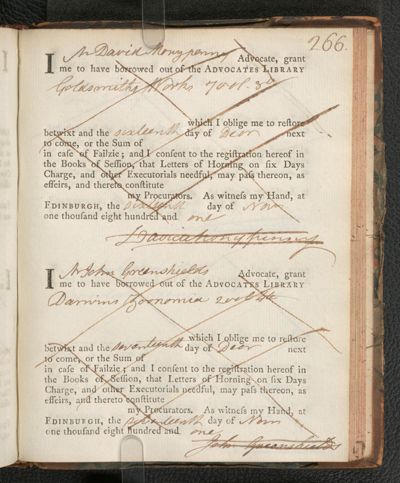 266.
I Mr David Monypenny Advocate, grant
me to have borrowed out of the ADVOCATES LIBRARY
Goldsmiths Works 7 vol. 8vo
which I oblige me to reſtore
betwixt and the sixteenth day of Decr next
to come, or the Sum of
in caſe of Failzie; and I conſent to the regiſtration hereof in
the Books of Seſſion, that Letters of Horning on ſix Days
Charge, and other Executorials needful, may paſs thereon, as
effeirs, and thereto conſtitute
my Procurators. As witneſs my Hand, at
EDINBURGH, the sixteenth day of Novr
one thouſand eight hundred and one
David Monypenny
I Mr John Greenshields Advocate, grant
me to have borrowed out of the ADVOCATES LIBRARY
Darwins Zoonomia 2 vol 4to
which I oblige me to reſtore
betwixt and the seventeenth day of Decr next
to come, or the Sum of
in caſe of Failzie; and I conſent to the regiſtration hereof in
the Books of Seſſion, that Letters of Horning on ſix Days
Charge, and other Executorials needful, may paſs thereon, as
effeirs, and thereto conſtitute
my Procurators. As witneſs my Hand, at
EDINBURGH, the seventeenth day of Novr
one thouſand eight hundred and one
John Greenshields